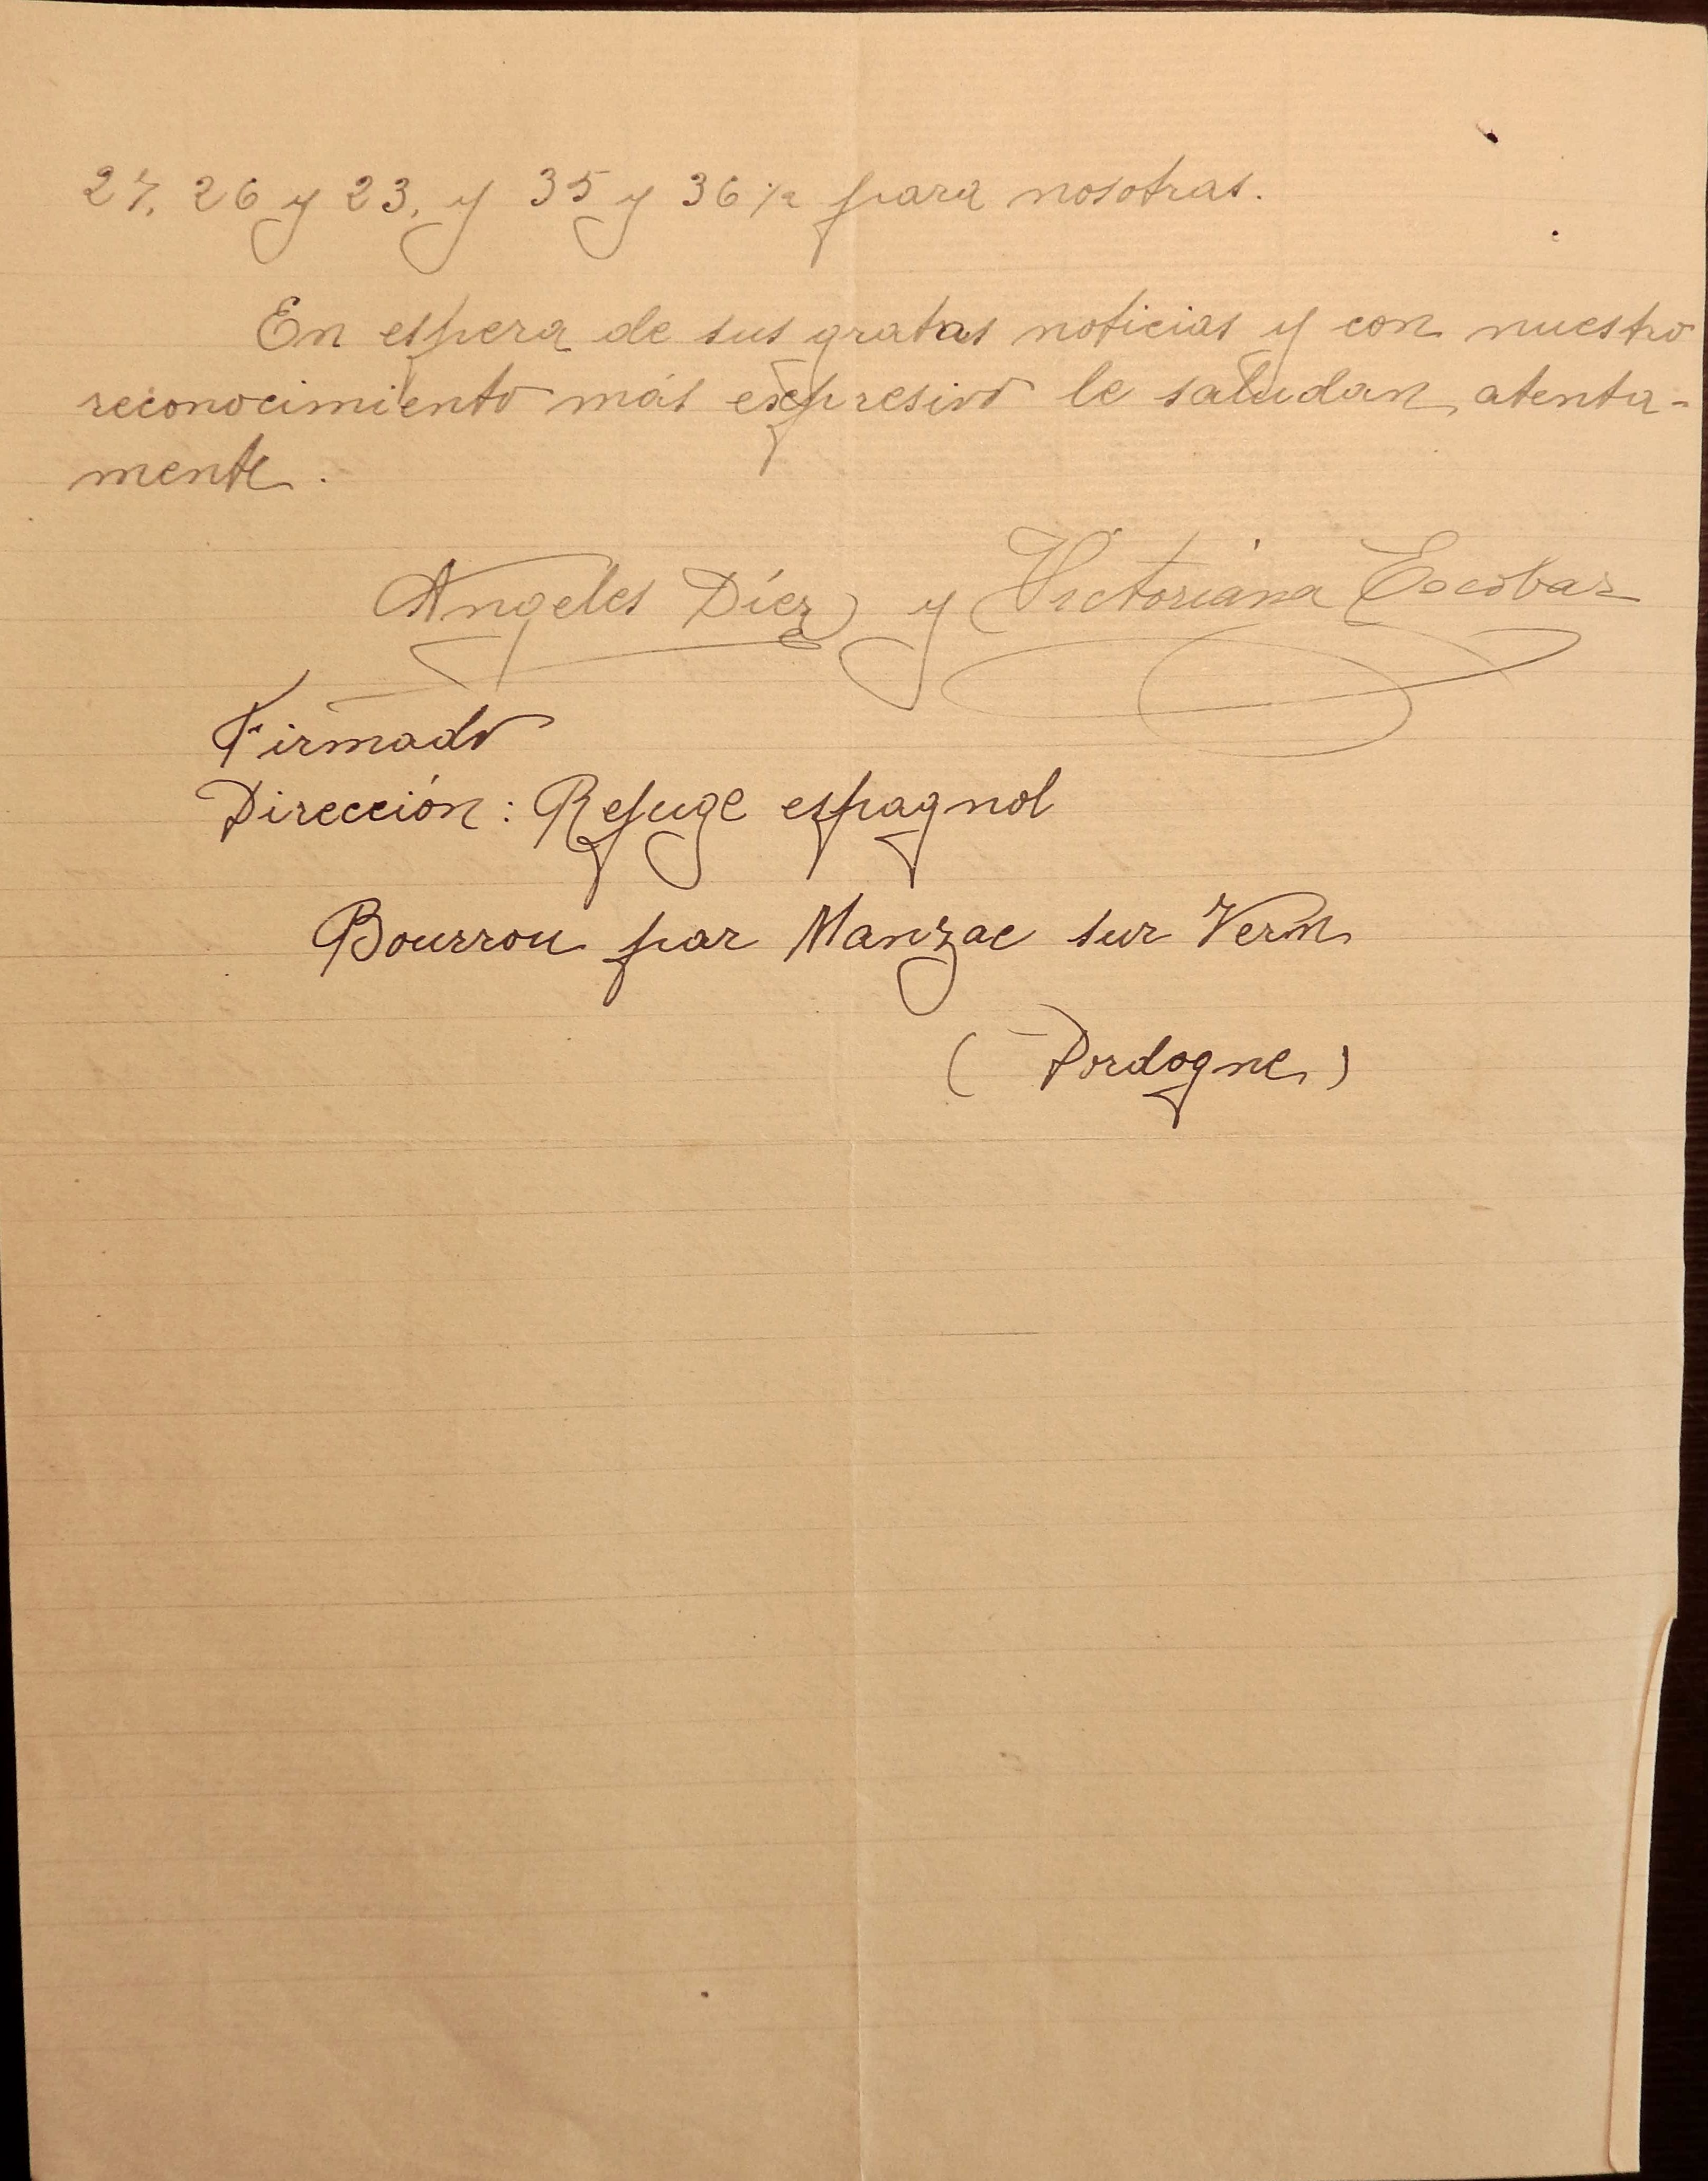 27, 26 y 23, y 35 y 36 ½ para nosotras.
En espera de sus gratas noticias y con nuestro
reconocimiento más expresivo le saludan atenta-
mente.
Angeles Díez y Victoriana Escobar
Firmado
Dirección: Refuge espagnol
Bourrou par Manzac sur Vern
(Dordogne)